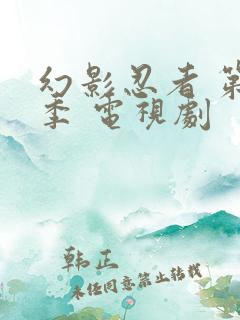 幻影忍者 第
季 電視劇
韩正
未经同意禁止转载